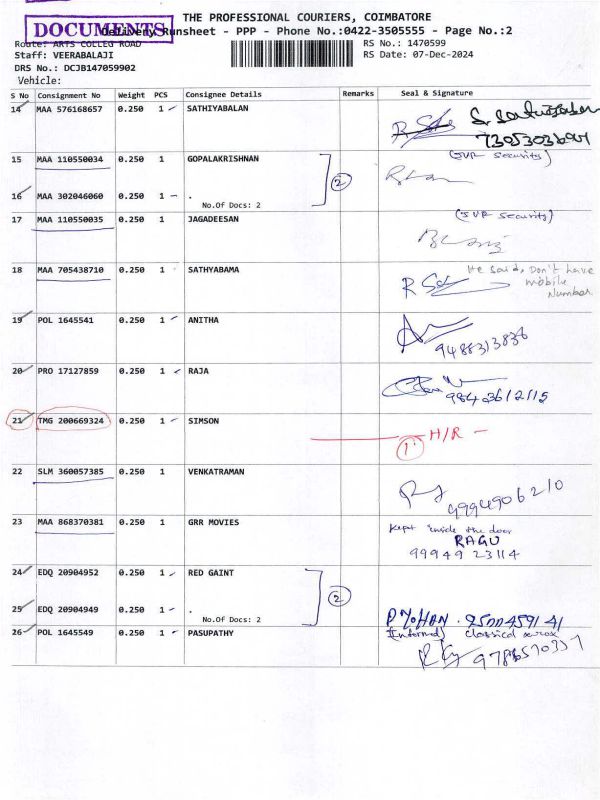 THE PROFESSIONAL COURIERS, COIMBATORE
DOCUMENTS
Delivery Runsheet - PPP - Phone No.:0422-3505555 - Page No.:2
Route: ARTS COLLEG ROAD
RS No.: 1470599
Staff: VEERABALAJI
RS Date: 07-Dec-2024
DRS No.: DCJB147059902
Vehicle:
S No Consignment No Weight PCS Consignee Details Remarks Seal & Signature
14 MAA 576168657 0.250 1 SATHIYABALAN
15 MAA 110550034 0.250 1 GOPALAKRISHNAN (SVR Security)
2
16 MAA 302046060 0.250 1 .
No.Of Docs: 2
17 MAA 110550035 0.250 1 JAGADEESAN (SVR Security)
18 MAA 705438710 0.250 1 SATHYABAMA He said, Don't have
mobile
Number.
19 POL 1645541 0.250 1 ANITHA
9488313836
20 PRO 17127859 0.250 1 RAJA
9843612115
21 TMG 200669324 0.250 1 SIMSON
1 H/R -
22 SLM 360057385 0.250 1 VENKATRAMAN
9994906210
23 MAA 868370381 0.250 1 GRR MOVIES Kept inside the door
RAGU
99949 23114
24 EDQ 20904952 0.250 1 RED GAINT
2
25 EDQ 20904949 0.250 1 .
No.Of Docs: 2
P MOHAN . 9500459141
26 POL 1645549 0.250 1 PASUPATHY (Informed) classical xerox